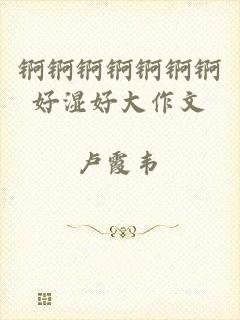 锕锕锕锕锕锕锕
好湿好大作文
卢霞韦